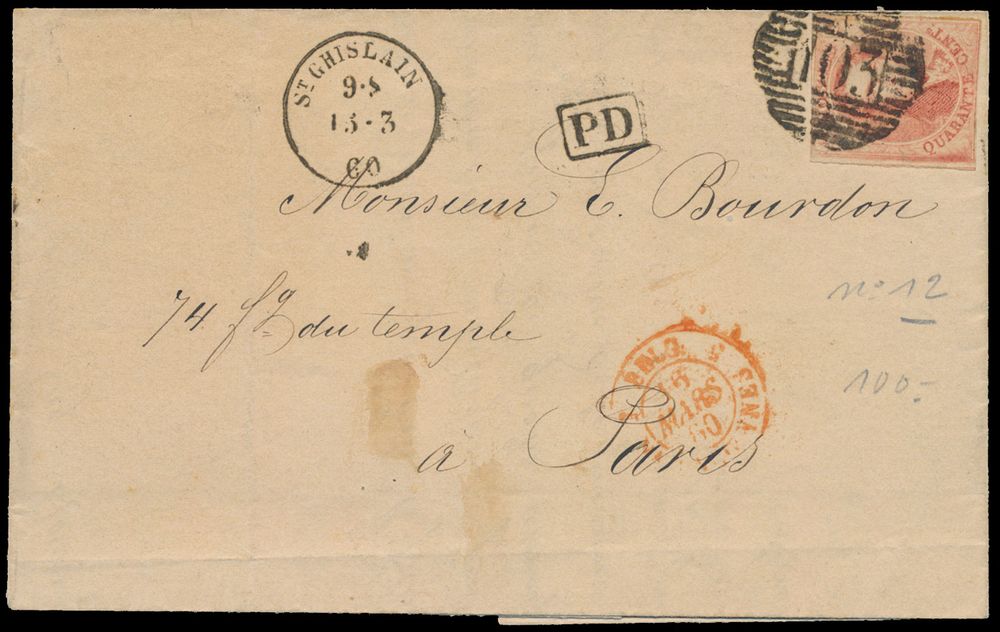 ST GHISLAIN
9-S
13-3
60
PD
103
QUARANTE CENTS
Monsieur E. Bourdon
74 fg. du temple
à Paris
BELG.
MARS
60
no 12
100-